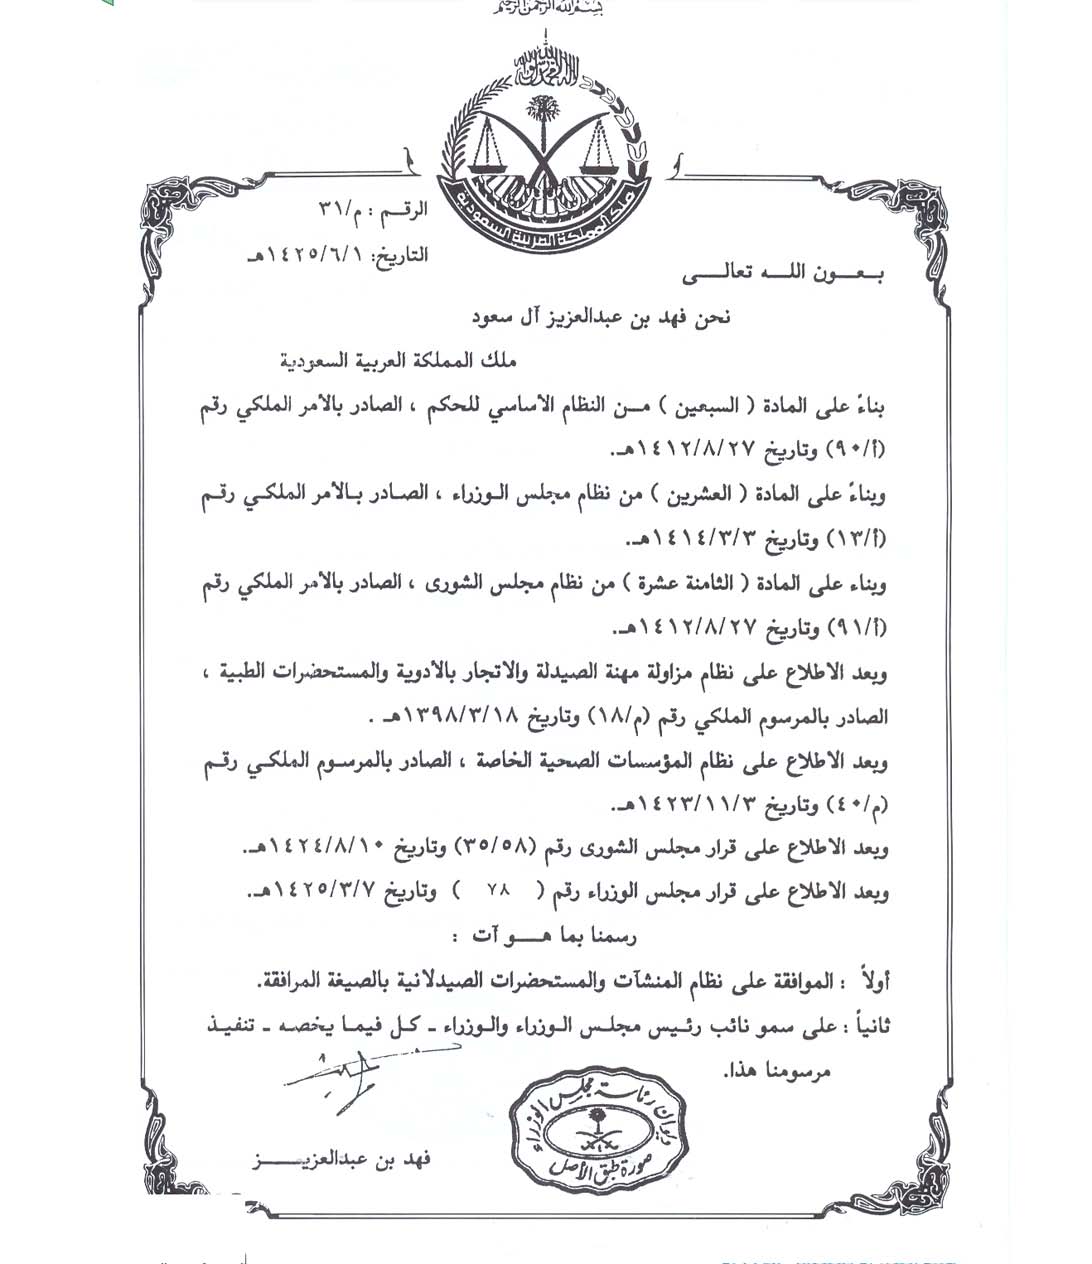 بسم الله الرحمن الرحيم
لا إله إلا الله محمد رسول الله
ملك المملكة العربية السعودية
الرقــم : م/٣١
التاريخ: ١٤٢٥/٦/١هـ
بـعـــون اللـــه تعالـــى
نحن فهد بن عبدالعزيز آل سعود
ملك المملكة العربية السعودية
بناءً على المادة ( السبعين ) مــن النظام الأساسي للحكم ، الصادر بالأمر الملكي رقم
(أ/٩٠) وتاريخ ١٤١٢/٨/٢٧هـ.
وبناءً على المادة ( العشرين ) من نظام مجلس الـوزراء ، الصـادر بـالأمر الملكـي رقـم
(أ/١٣) وتاريخ ١٤١٤/٣/٣هـ.
وبناء على المادة ( الثامنة عشرة ) من نظام مجلس الشورى ، الصادر بالأمر الملكي رقم
(أ/٩١) وتاريخ ١٤١٢/٨/٢٧هـ.
وبعد الاطلاع على نظام مزاولة مهنة الصيدلة والاتجار بالأدوية والمستحضرات الطبية ،
الصادر بالمرسوم الملكي رقم (م/١٨) وتاريخ ١٣٩٨/٣/١٨هـ .
وبعد الاطلاع على نظام المؤسسات الصحية الخاصة ، الصادر بالمرسوم الملكـي رقـم
(م/٤٠) وتاريخ ١٤٢٣/١١/٣هـ.
وبعد الاطلاع على قرار مجلس الشورى رقم (٣٥/٥٨) وتاريخ ١٤٢٤/٨/١٠هـ.
وبعد الاطلاع على قرار مجلس الوزراء رقم ( ٧٨ ) وتاريخ ١٤٢٥/٣/٧هـ.
رسمنا بما هـــو آت :
أولاً : الموافقة على نظام المنشآت والمستحضرات الصيدلانية بالصيغة المرافقة.
ثانياً : على سمو نائب رئـيس مجلـس الـوزراء والـوزراء ـ كـل فيمـا يخصـه ـ تنفيـذ
مرسومنا هذا.
ديوان رئاسة مجلس الوزراء
صورة طبق الأصل
فهد بن عبدالعزيـــــز